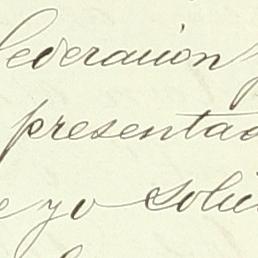 federacion
presentad
e yo solici